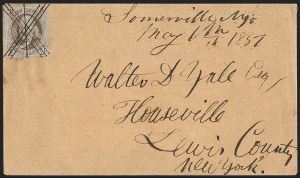 Somerville N.Y.
May 1857
Walter D. Yale Esq
Houseville
Lewis County
New York.